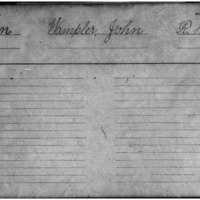 n Wampler, John R.